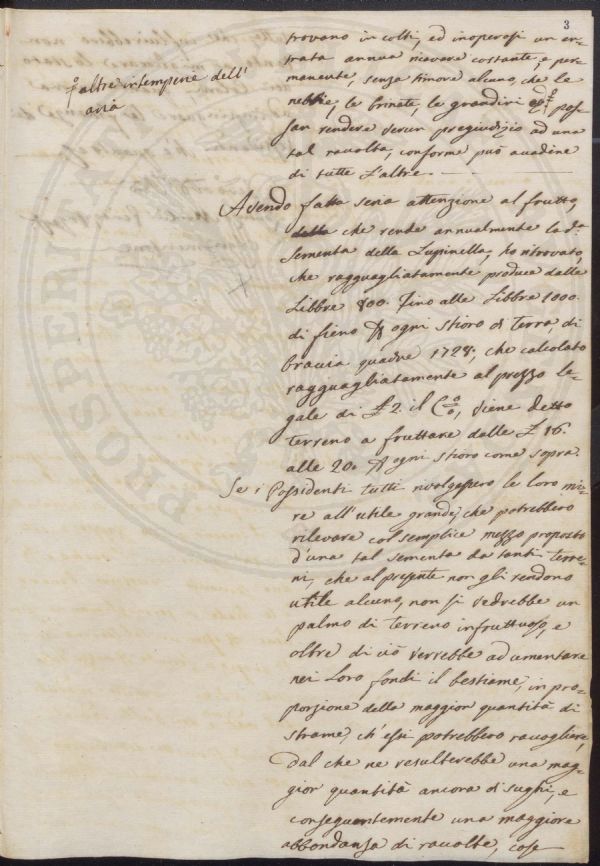 3
trovano in colti, ed inoperosi un en=
trata annua ricavare costante, e per=
manente, senza timore alcuno, che le
nebbie, le brinate, le grandini, pos=
san rendere verun pregiudizio ad una
tal racolta, conforme può acadere
di tutte l'altre.
o altre intemperie dell'
aria
Avendo fatta seria attenzione al frutto,
che rende annualmente la d.a
Sementa della Lupinella, ho ritrovato,
che ragguagliatamente produca dalle
Libbre 800. fino alle Libbre 1000.
di fieno ogni stioro di terra, di
bracia quadre 1728; che calcolato
ragguagliatamente al prezzo le=
gale di £ 2. il C., viene detto
terreno a fruttare dalle £ 16.
alle 20. ogni stioro come sopra.
Se i Possidenti tutti rivolgessero le loro mi=
re all'utile grande, che potrebbero
rilevare col semplice mezzo proposto
d'una tal sementa da tanti terre=
ni, che al presente non gli rendono
utile alcuno, non si vedrebbe un
palmo di terreno infruttuoso, e
oltre di ciò verrebbe ad umentare
nei Loro fondi il bestiame, in pro=
porzione della maggior quantità di
strame, ch'essi potrebbero racogliere,
dal che ne resulterebbe una mag=
gior quantità ancora di sughi, e
conseguentemente una maggiore
abbondanza di racolte, cose
PROSPERITATI